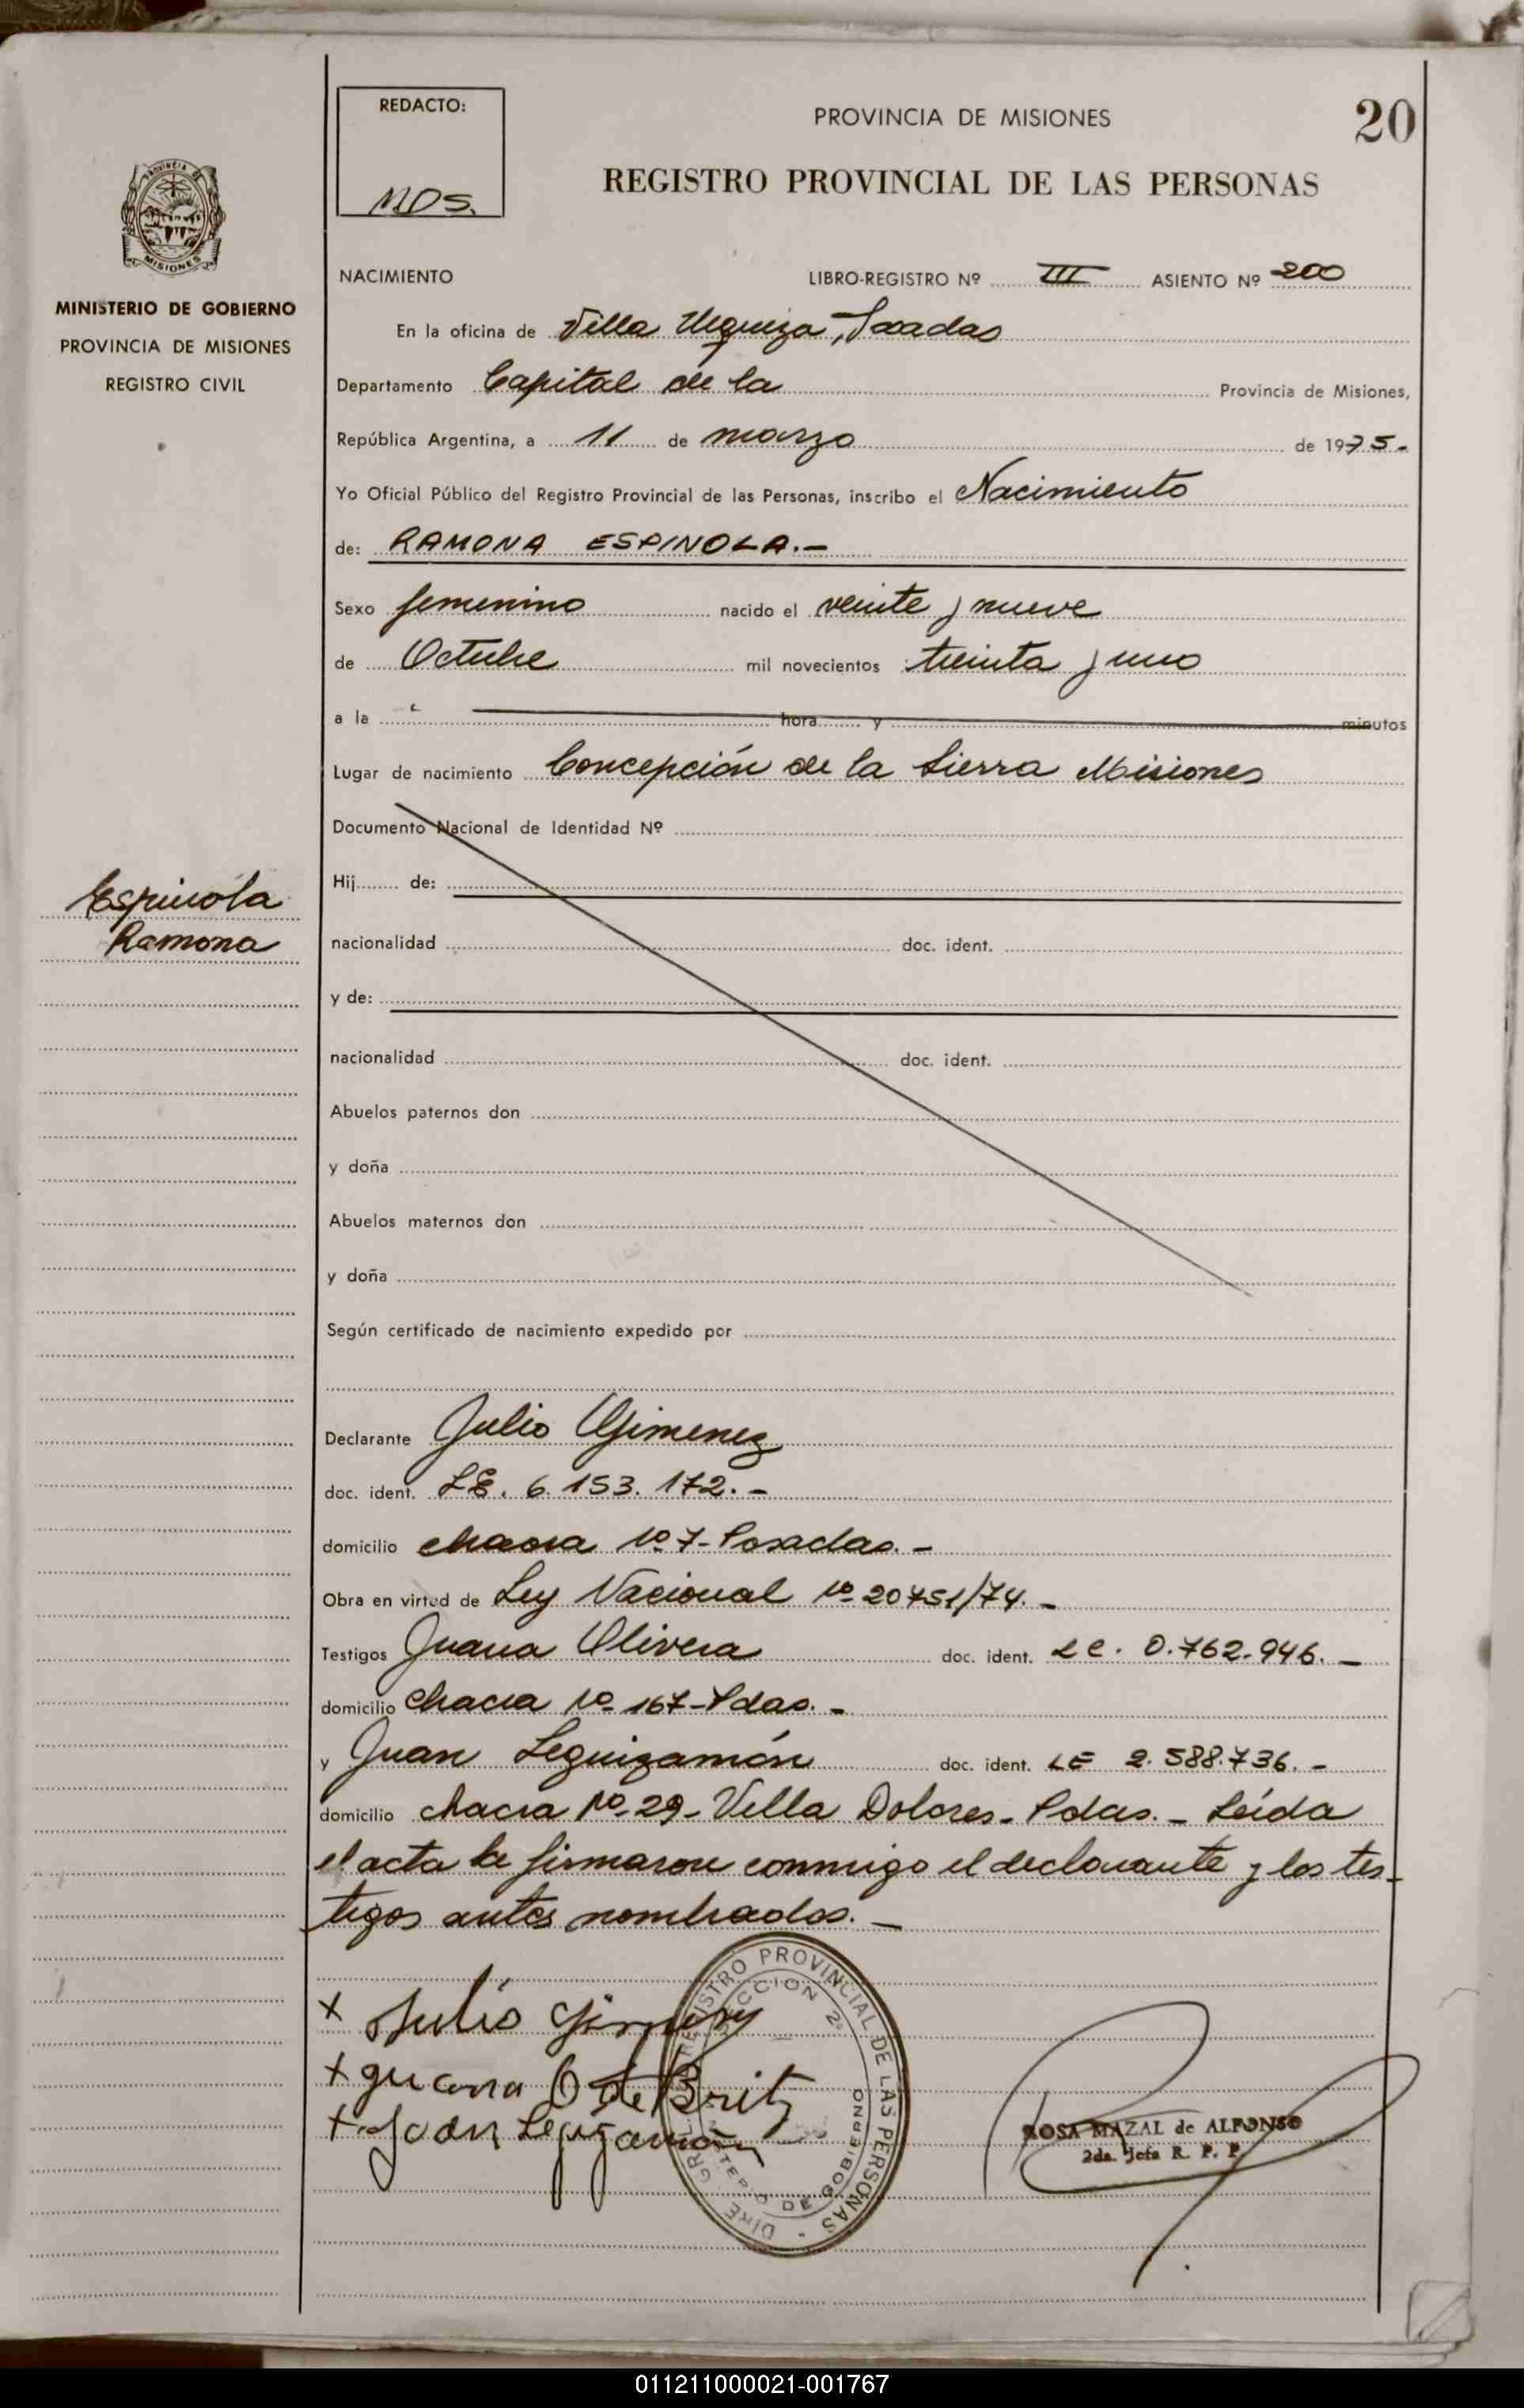 20
REDACTO:
MDS.
PROVINCIA DE MISIONES
REGISTRO PROVINCIAL DE LAS PERSONAS
PROVINCIA DE
MISIONES
MINISTERIO DE GOBIERNO
PROVINCIA DE MISIONES
REGISTRO CIVIL
Espinola
Ramona
NACIMIENTO LIBRO-REGISTRO Nº III ASIENTO Nº 200
En la oficina de Villa Urquiza, Posadas
Departamento Capital de la Provincia de Misiones,
República Argentina, a 11 de marzo de 1975.-
Yo Oficial Público del Registro Provincial de las Personas, inscribo el Nacimiento
de: RAMONA ESPINOLA.-
Sexo femenino nacido el veinte y nueve
de Octubre mil novecientos treinta y uno
a la hora y minutos
Lugar de nacimiento Concepción de la Sierra Misiones
Documento Nacional de Identidad Nº
Hij de:
nacionalidad doc. ident.
y de:
nacionalidad doc. ident.
Abuelos paternos don
y doña
Abuelos maternos don
y doña
Según certificado de nacimiento expedido por
Declarante Julio Gimenez
doc. ident. LE. 6.153.172.-
domicilio chacra Nº 7-Posadas.-
Obra en virtud de Ley Nacional Nº 20751/74.-
Testigos Juana Olivera doc. ident. LC. 0.762.946.-
domicilio chacra Nº 167-Pdas.-
y Juan Leguizamón doc. ident. LE 2.588.736.-
domicilio chacra Nº 29-Villa Dolores-Pdas.- Leída
el acta la firmaron conmigo el declarante y los tes-
tigos antes nombrados.-
x Julio Gimenez
x Juana O de Britz
x Juan Legizamón
REGISTRO PROVINCIAL DE LAS PERSONAS - DIRE GRL
SECCION 2ª
MINISTERIO DE GOBIERNO
ROSA MAZAL de ALFONSO
2da. Jefa R. P. P.
011211000021-001767